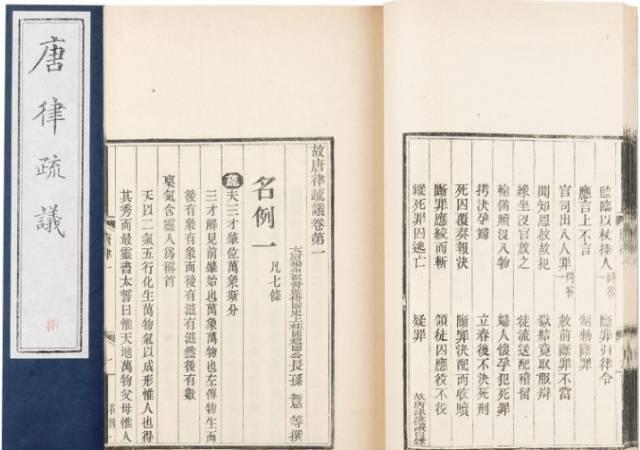 唐律疏議
捌
監臨以杖捶人 斷罪引律令
應言上不言 制勅斷罪
官司出入人罪 問答 赦前斷罪不當
聞知恩赦故犯 獄結竟取服辯
緣坐沒官放之 徒流送配稽留
輸備贖沒入物 婦人懷孕犯死罪
拷決孕婦 立春後不決死刑
死囚覆奏報決 斷罪決配而收贖
斷罪應絞而斬 領徒囚應役不役
縱死罪囚逃亡 疑罪
故唐律疏議目錄
故唐律疏議卷第一
公長孫 等撰
名例一 凡七條
疏 夫三才肇位萬象斯分
三才解見前肇始也萬象萬物也左傳物生而
後有象有象而後有滋有滋然後有數
稟氣含靈人爲稱首
天以二氣五行化生萬物氣以成形惟人也得
其秀而最靈書太誓曰惟天地萬物父母惟人
唐律一